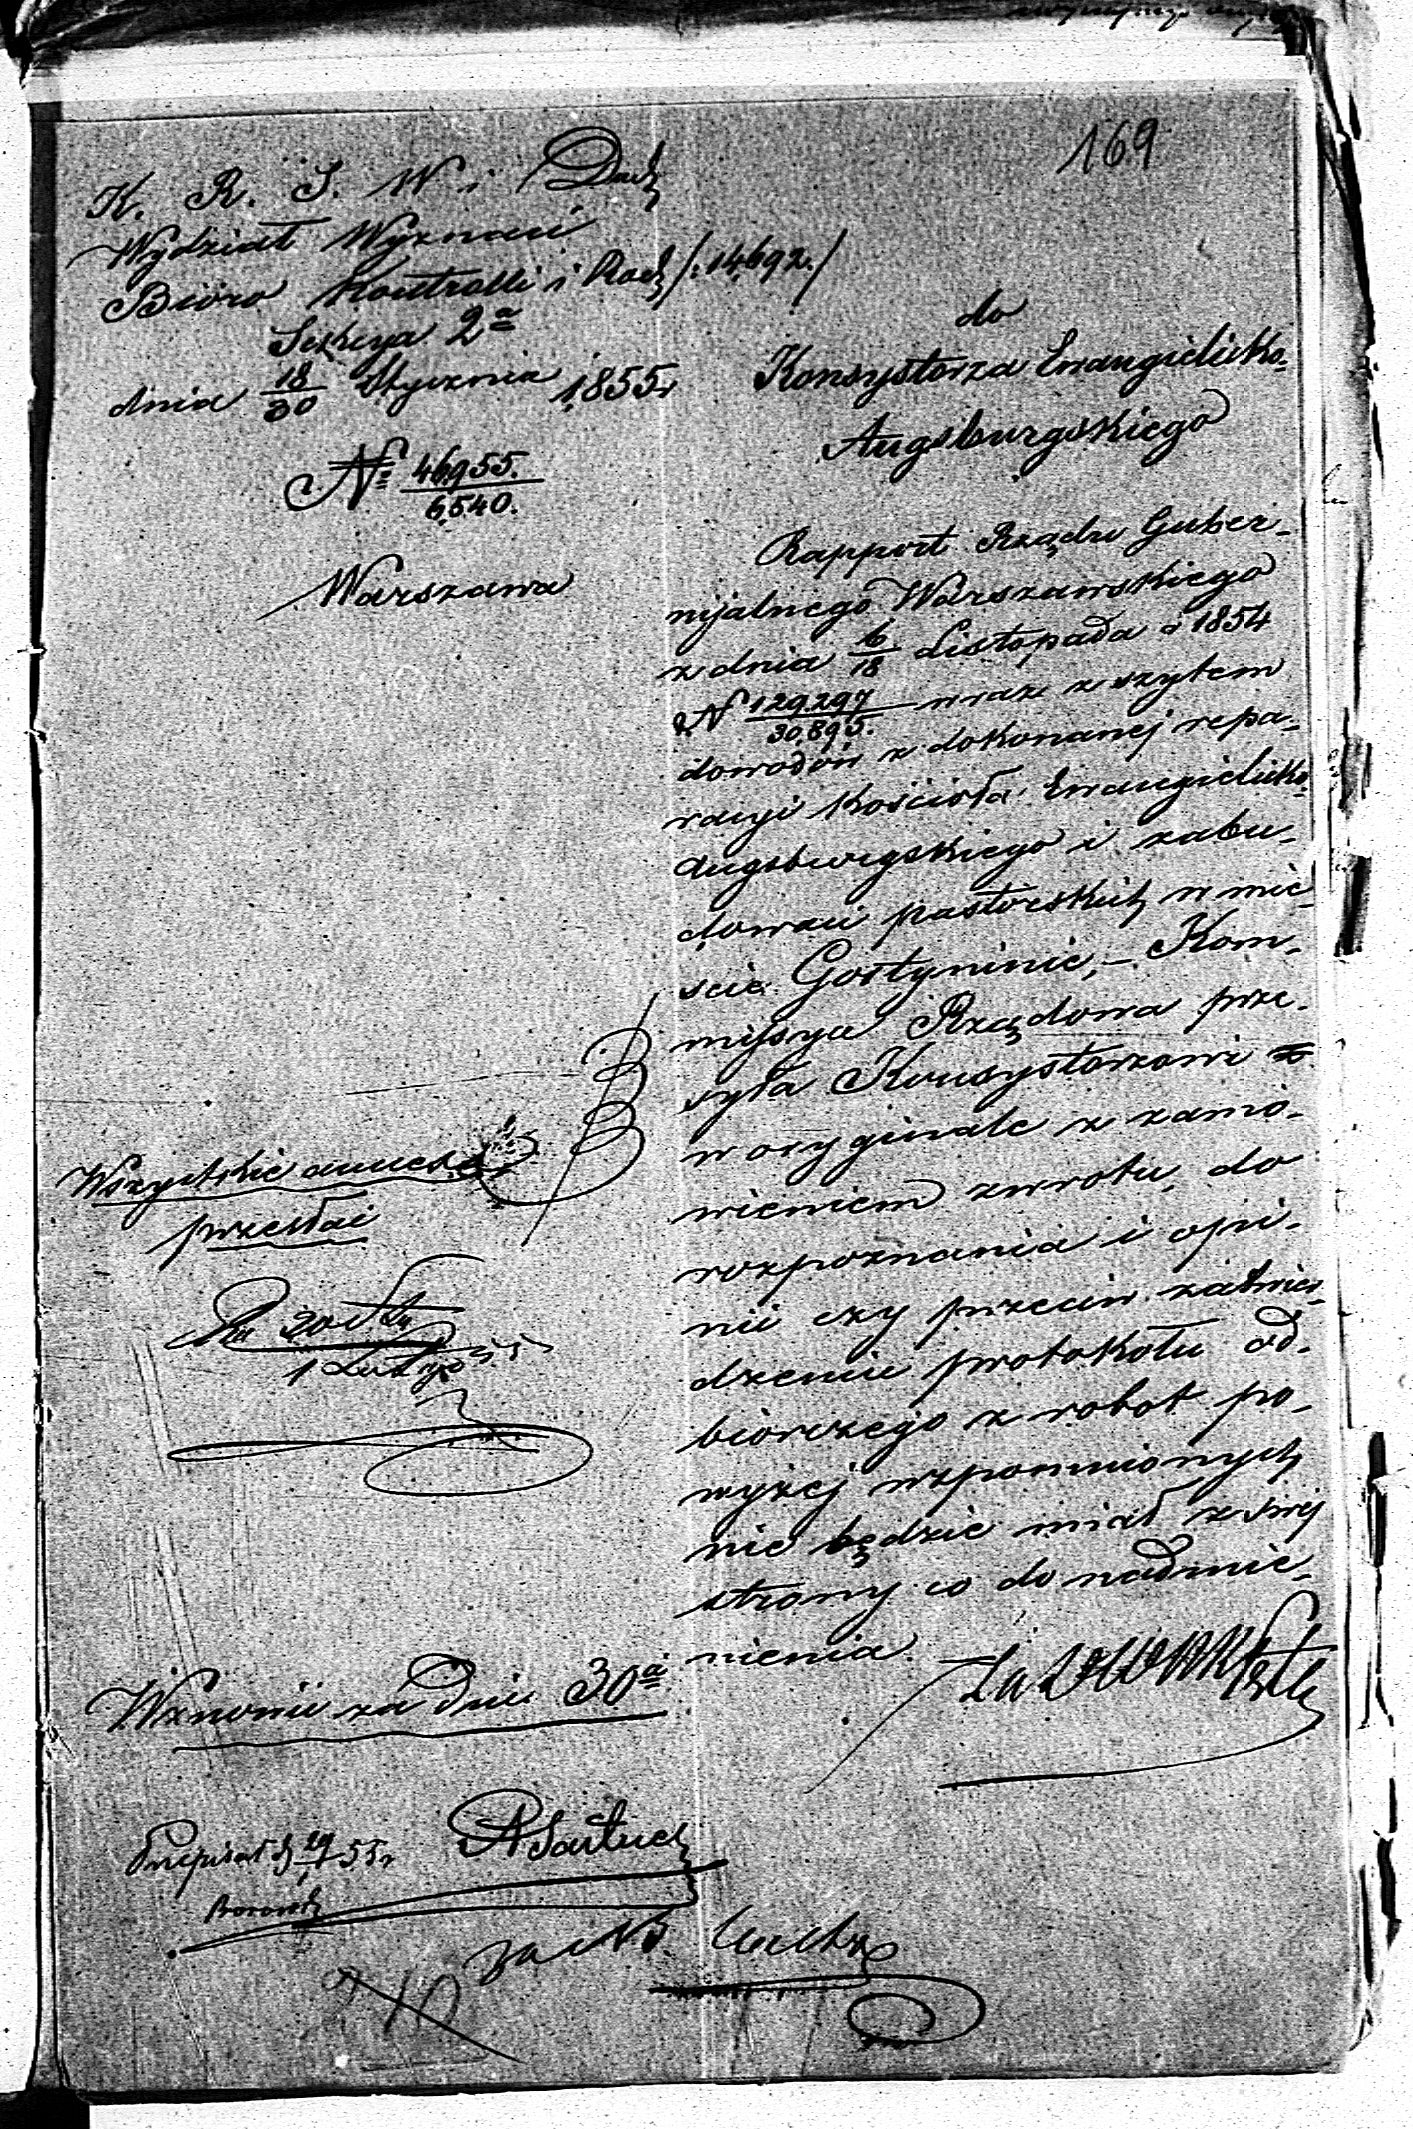 169
K. R. S. W i Duch
Wydział Wyznań
Bióro Kontrolli i Rach /:14,692./
Sekcya 2ª
dnia 18/30 Stycznia 1855r
№ 46,955./6,540.
Warszawa
do
Konsystorza Ewangielicko-
Augsburgskiego
Rapport Rządu Guber-
nijalnego Warszawskiego
z dnia 6/18 Listopada 1854
N 129,297/30,895. wraz z szytem
dowodów z dokonanej repa-
racyi Kościoła Ewangielicko
Augsburgskiego i zabu-
dowań pastorskich w mie-
ście Gostyninie, – Kom-
missya Rządowa prze-
syła Konsystorzowi
w oryginale z zamó-
wieniem zwrotu, do
rozpoznania i opi-
nii czy przeciw zatwier-
dzeniu protokołu od-
biorczego z robot po-
wyżej wspomnionych
nie będzie miał z swej
strony co do nadmie-
nienia.
Wszystkie
przesłać
20
1 Lutego 55
Wznowić za dni 30ª
Przepisał d 29/1 55r
za N.